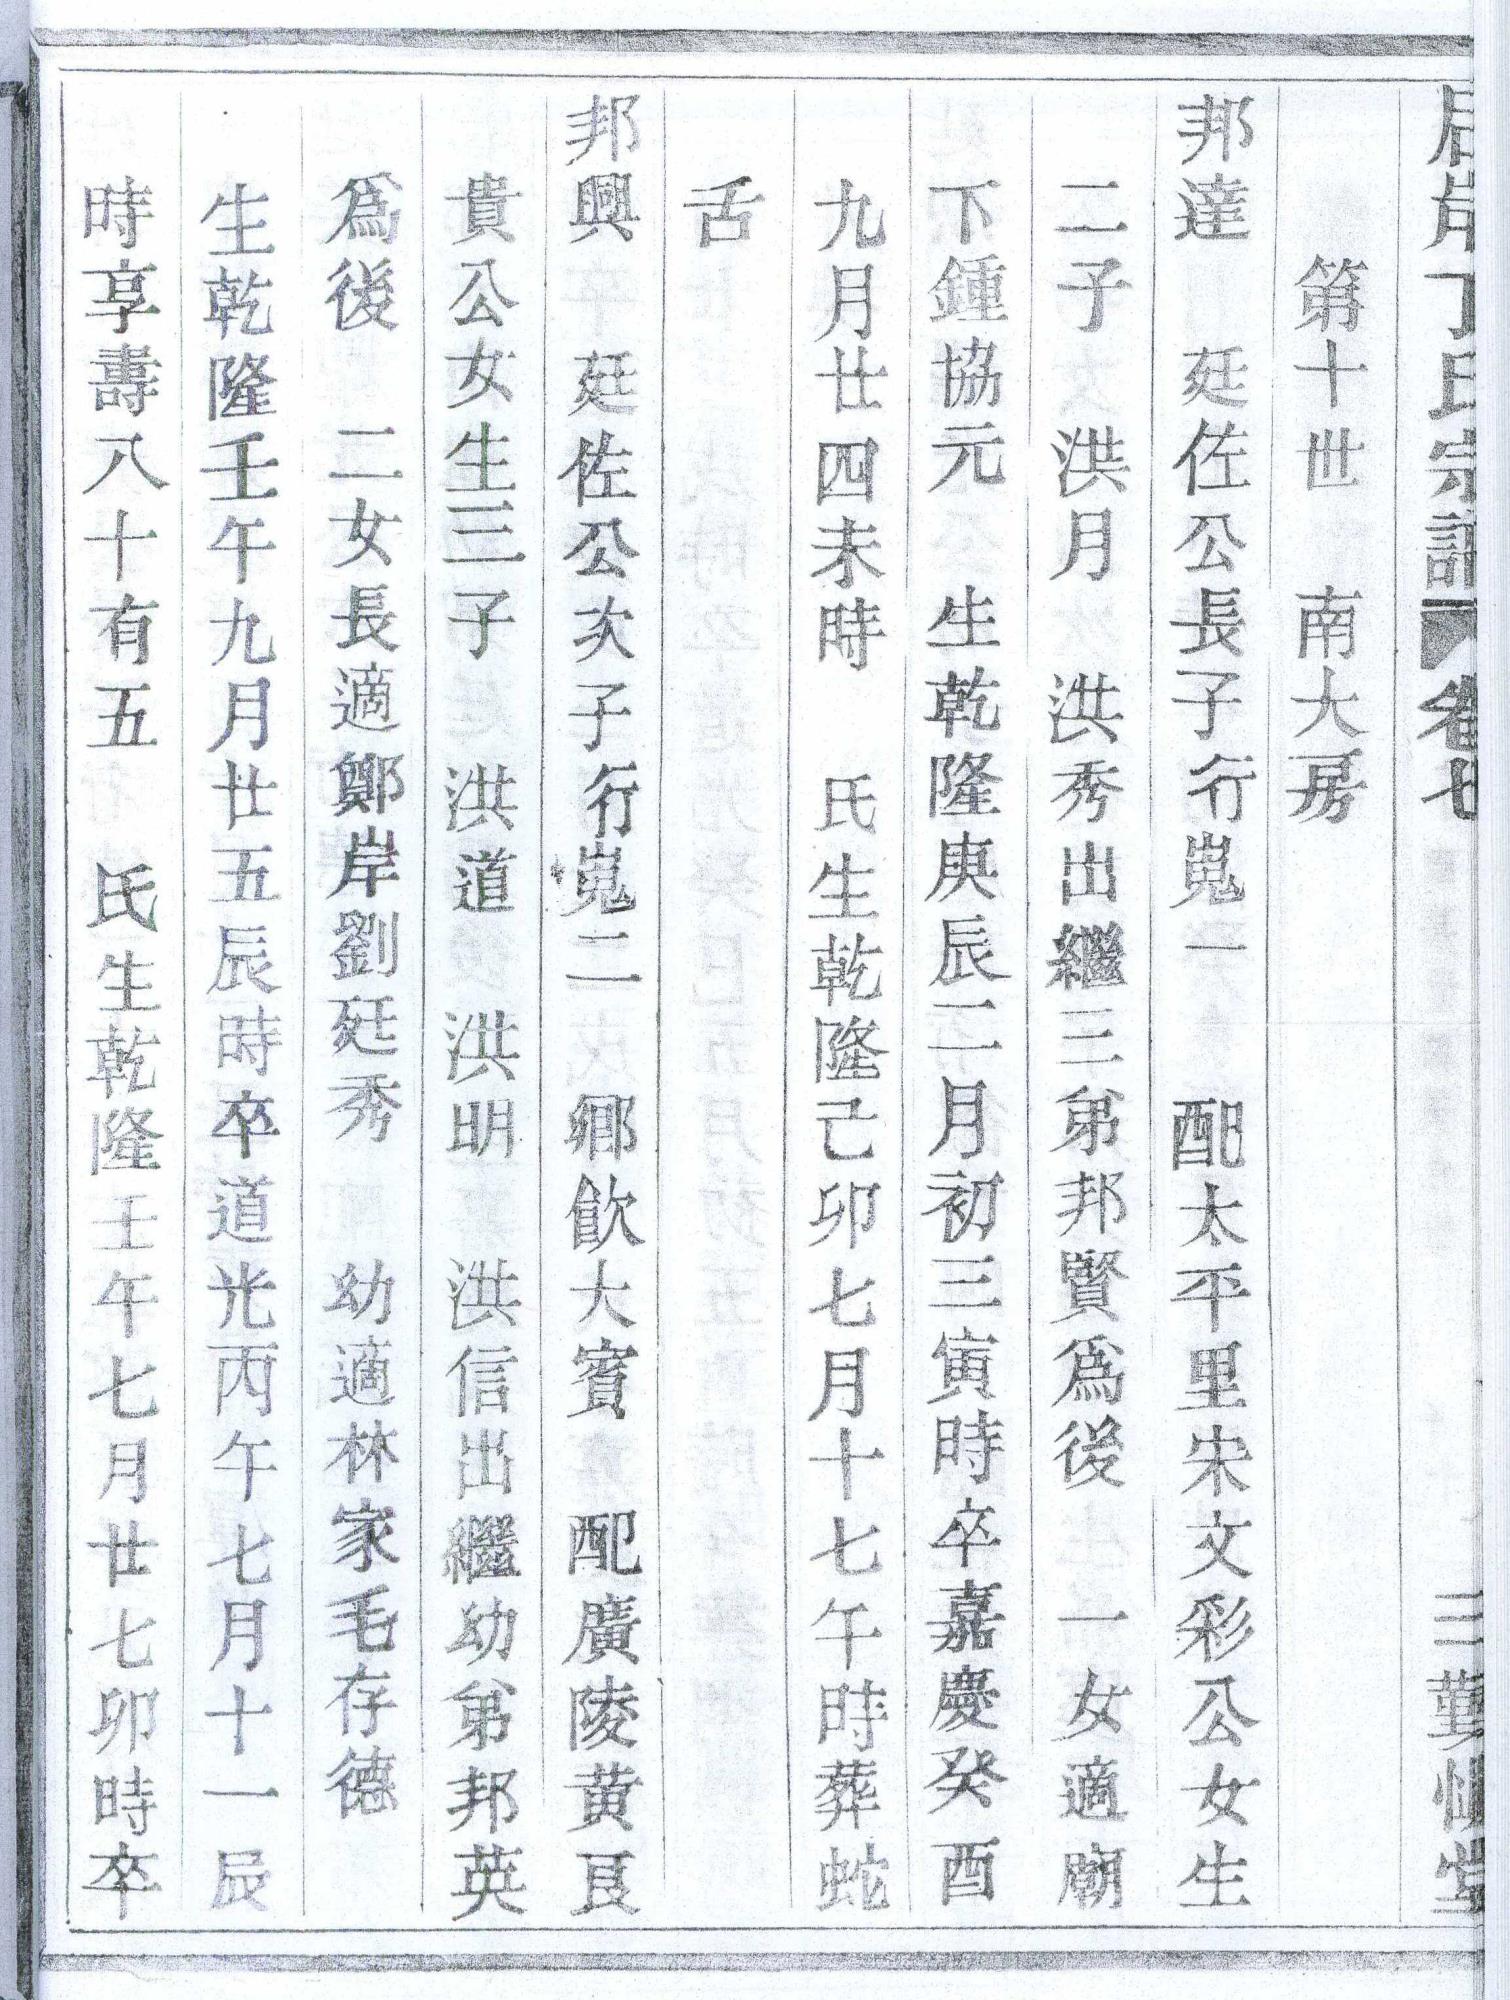 丁氏宗譜 卷七 三勤惟堂
第十世 南大房
邦達 廷佐公長子行嵬一 配太平里宋文彩公女生
二子 洪月 洪秀出繼三弟邦賢爲後 一女適廟
下鍾協元 生乾隆庚辰二月初三寅時卒嘉慶癸酉
九月廿四未時 氏生乾隆己卯七月十七午時葬蛇
舌
邦興 廷佐公次子行嵬二 鄉飮大賓 配廣陵黃良
貴公女生三子 洪道 洪明 洪信出繼幼弟邦英
爲後 二女長適鄭岸劉廷秀 幼適林家毛存德
生乾隆壬午九月廿五辰時卒道光丙午七月十一辰
時享壽八十有五 氏生乾隆壬午七月廿七卯時卒